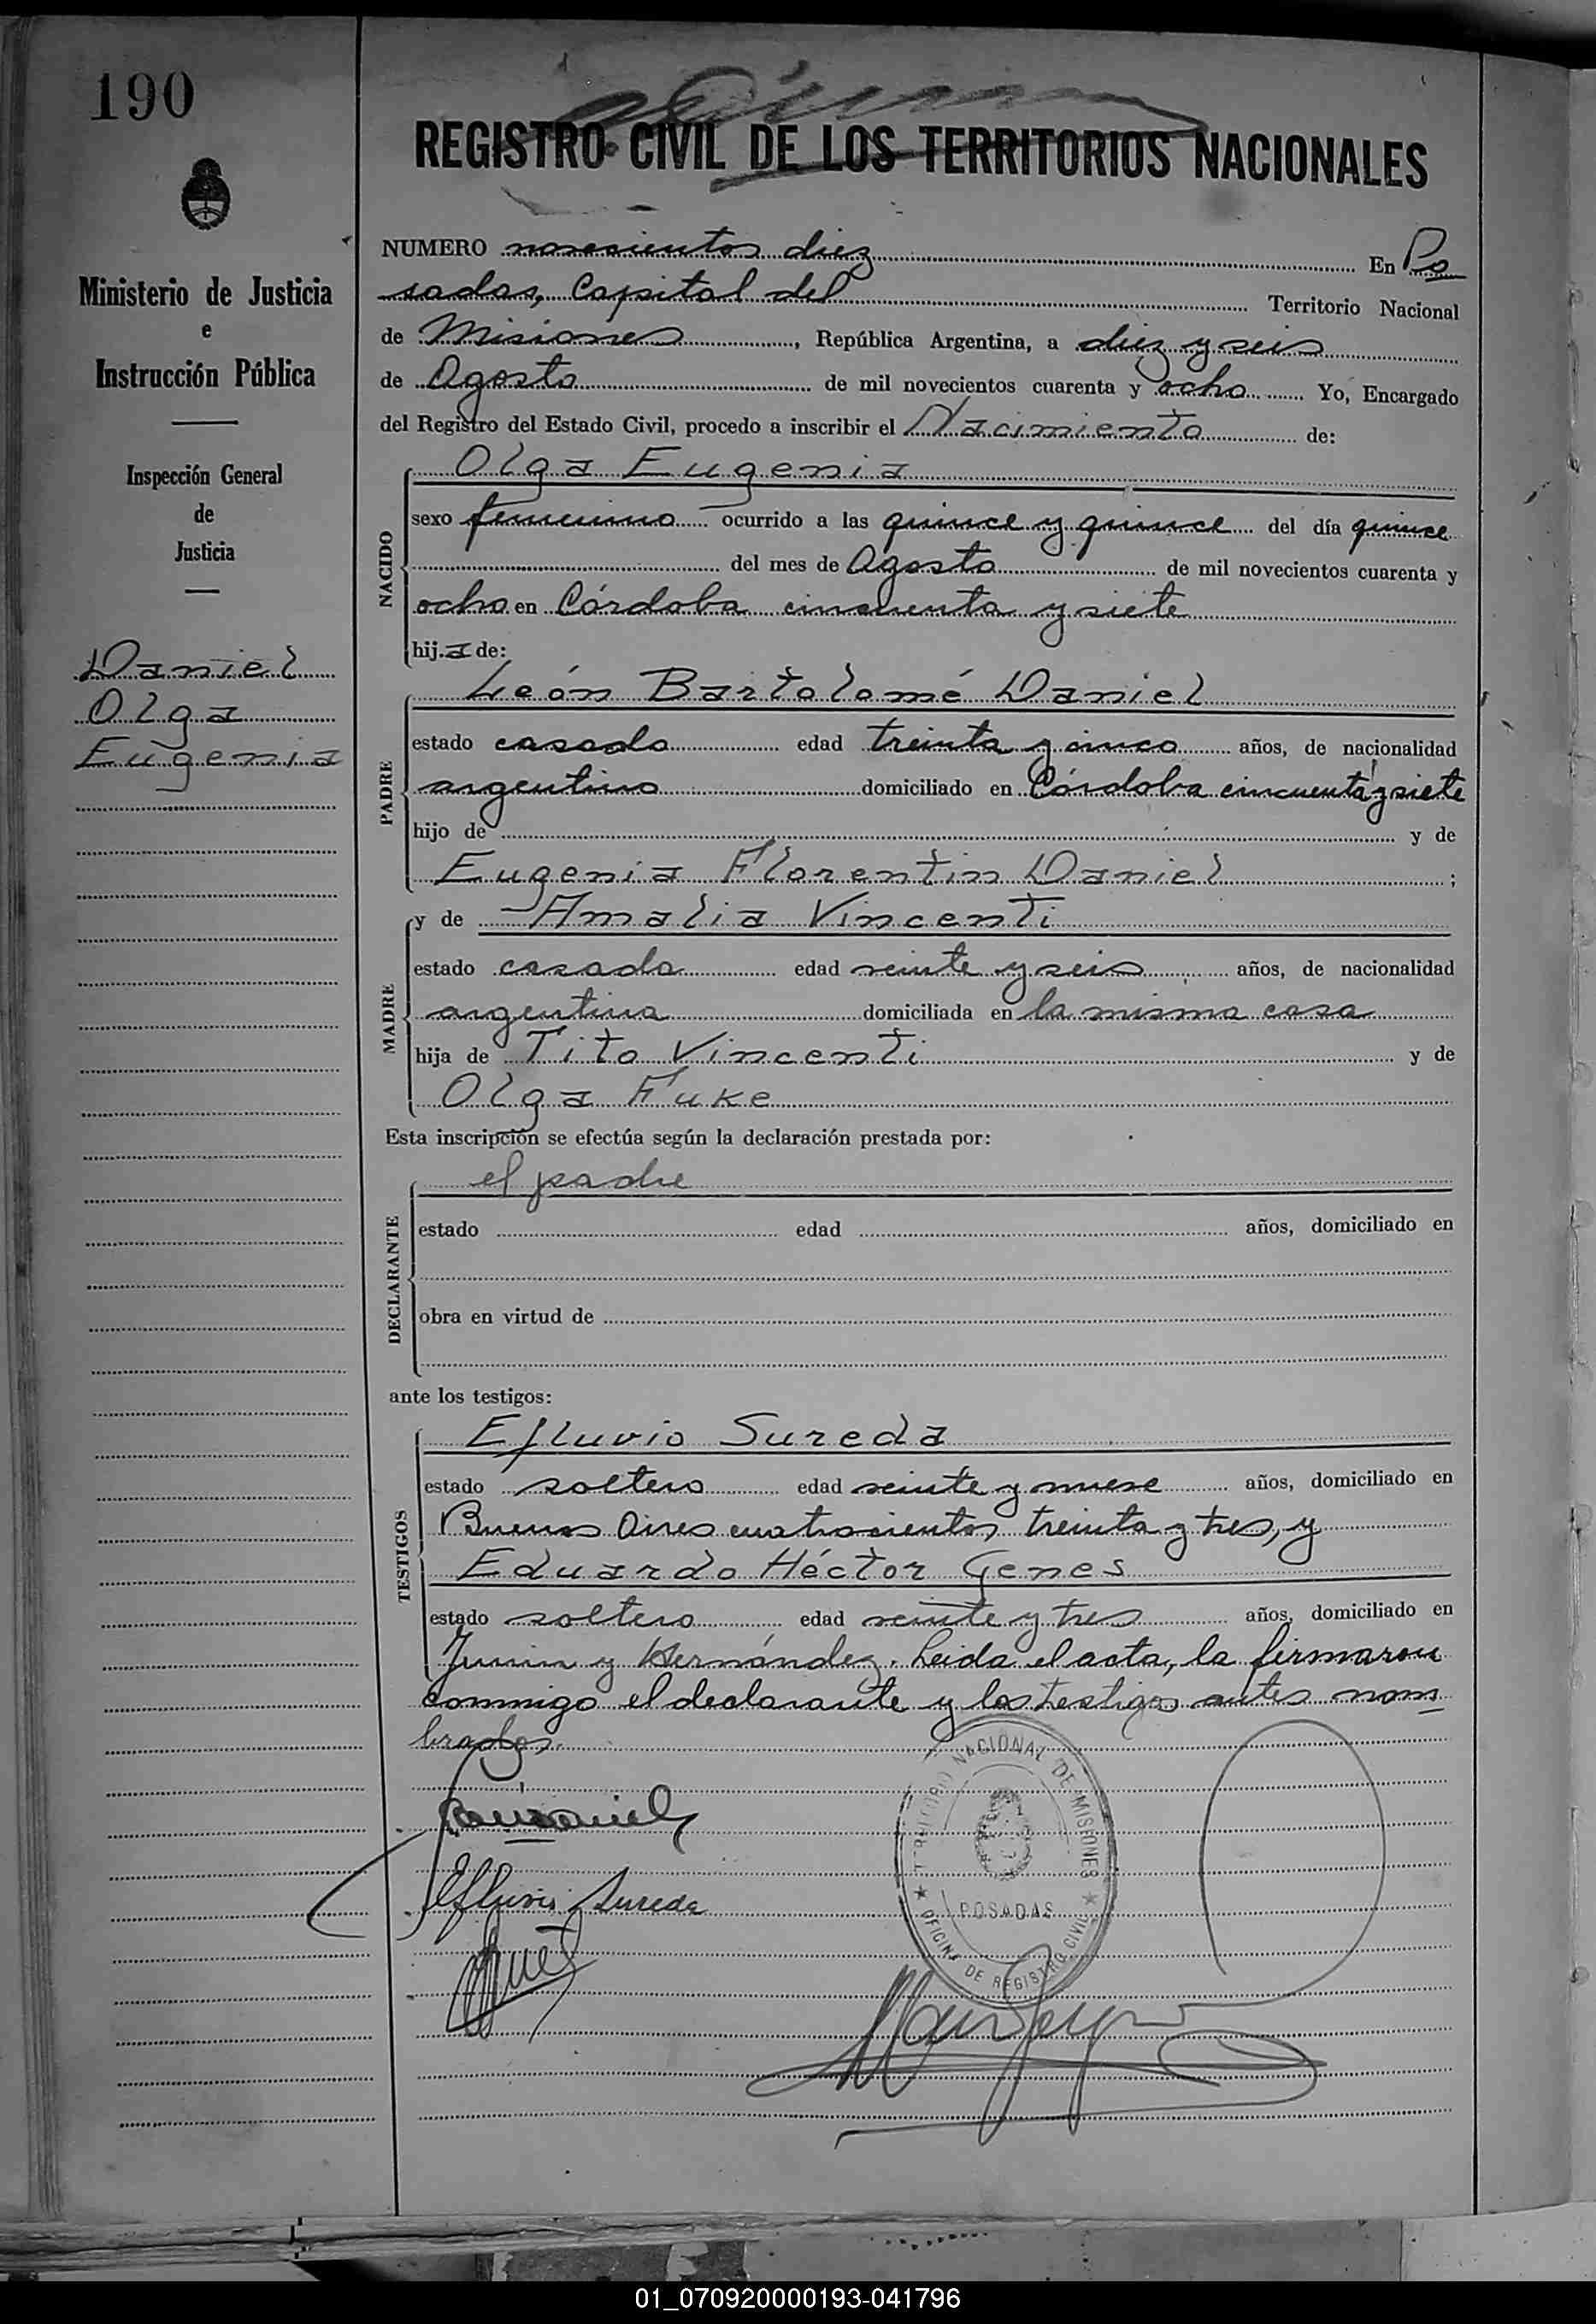 190
Ministerio de Justicia
e
Instrucción Pública
Inspección General
de
Justicia
Daniel
Olga
Eugenia
REGISTRO CIVIL DE LOS TERRITORIOS NACIONALES
NUMERO novecientos diez En Po
sadas, Capital del Territorio Nacional
de Misiones, República Argentina, a diez y seis
de Agosto de mil novecientos cuarenta y ocho Yo, Encargado
del Registro del Estado Civil, procedo a inscribir el Nacimiento de:
NACIDO
Olga Eugenia
sexo femenino ocurrido a las quince y quince del día quince
del mes de Agosto de mil novecientos cuarenta y
ocho en Córdoba cincuenta y siete
hij a de:
PADRE
León Bartolomé Daniel
estado casado edad treinta y cinco años, de nacionalidad
argentino domiciliado en Córdoba cincuenta y siete
hijo de y de
Eugenia Florentin Daniel ;
MADRE
y de Amalia Vincenti
estado casada edad veinte y seis años, de nacionalidad
argentina domiciliada en la misma casa
hija de Tito Vincenti y de
Olga Fuke
Esta inscripción se efectúa según la declaración prestada por:
DECLARANTE
el padre
estado edad años, domiciliado en
obra en virtud de
ante los testigos:
TESTIGOS
Efluvio Sureda
estado soltero edad veinte y nueve años, domiciliado en
Buenos Aires cuatrocientos treinta y tres, y
Eduardo Héctor Genes
estado soltero edad veinte y tres años, domiciliado en
Junin y Hernández. Leida el acta, la firmaron
conmigo el declarante y los testigos antes nom
brados.
Efluvio Sureda
TERRITORIO NACIONAL DE MISIONES
POSADAS
OFICINA DE REGISTRO CIVIL
01_070920000193-041796